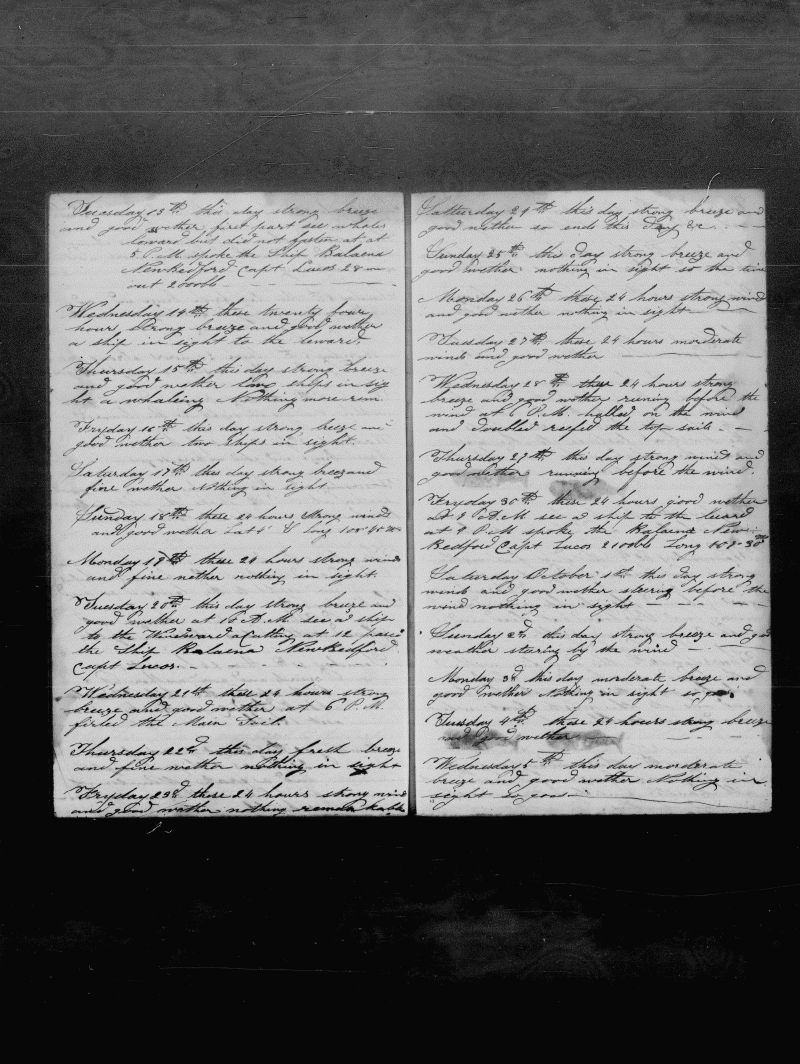 Tuesday 13th this day strong breeze
and good wether first part see whales
loward but did not fasten at at
5 P.M. spoke the Ship Balaena
NewBedford Capt Lucos 28 m
out 2000bb
Wednesday 14th these twenty four
hours strong breeze and good wether
a ship in sight to the leward.
Thursday 15th this day strong breeze
and good wether two ships in sig
ht a whaling Nothing more rem
Fryday 16th this day strong breeze an
good wether two ships in sight.
Saturday 17th this day strong breeze and
fine wether Nothing in sight
Sunday 18th these 24 hours strong winds
and good wether Latt Long
Monday 19th these 24 hours strong winds
and fine wether nothing in sight.
Tuesday 20th this day strong breeze and
good wether at 10 A.M. see a ship
to the Windward a Cutting at 12 passed
the Ship Balaena NewBedford
Capt Lucos.
Wednesday 21st these 24 hours strong
breeze and good wether at 6 P.M.
firled the Main Sail.
Thursday 22d this day fresh breeze
and fine wether nothing in sight
Fryday 23d these 24 hours strong wind
and good wether nothing remarkable
Satturday 24th this day strong breeze and
good wether so ends this day &c
Sunday 25th this day strong breeze and
good wether nothing in sight so the time
Monday 26th these 24 hours strong wind
and good wether nothing in sight
Tuesday 27th these 24 hours morderate
winds and good wether
Wednesday 28th these 24 hours strong
breeze and good wether runing before the
wind at 6 P.M. halled on the wind
and doubled reefed the top sails.
Thursday 29th this day strong wind and
good wether running before the wind
Fryday 30th these 24 hours good wether
at 9 A.M see a ship to the leward
at 4 P.M spoke the Balaena New
Bedford Capt Lucos 2100bb Long
Saturday October 1th this day strong
winds and good wether stering before the
wind nothing in sight
Sunday 2d this day strong breeze and good
weather staring by the wind
Monday 3d this day morderate breeze and
good wether Nothing in sight so goes
Tuesday 4th these 24 hours strong breeze
and good wether
Wednesday 5th this day morderate
breeze and good wether Nothing in
sight so goos